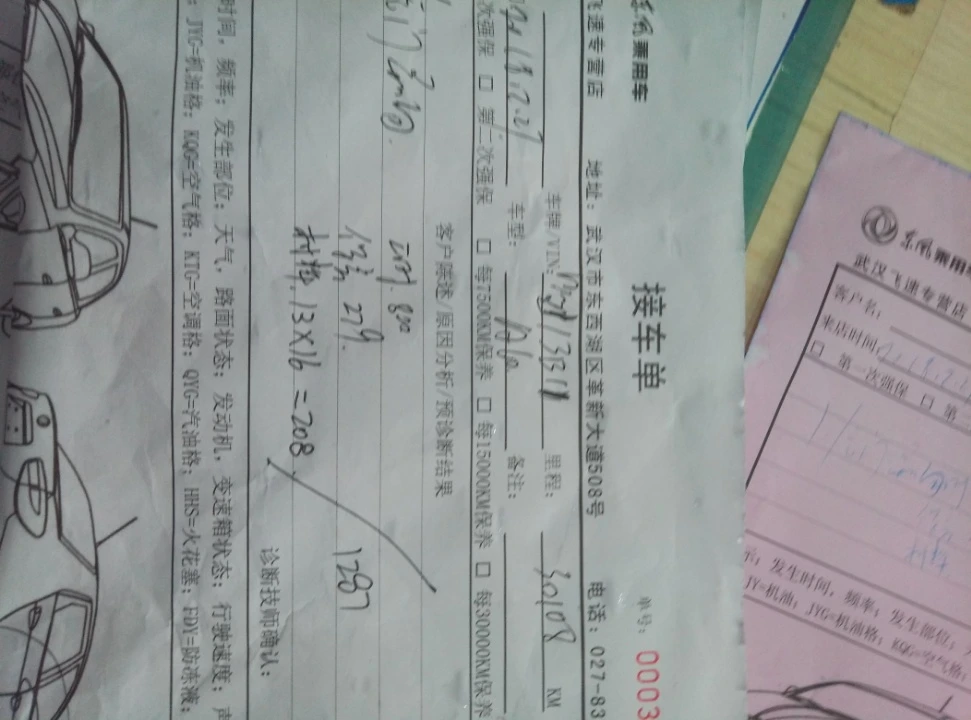 东风乘用车
接车单
单号： 0003
飞速专营店 地址：武汉市东西湖区革新大道508号 电话：027-83
车牌/VIN： 里程： 30108 KM
18.2.27 车型： 备注：
次强保 □ 第二次强保 □ 每7500KM保养 □ 每15000KM保养 □ 每30000KM保养
客户陈述/原因分析/预诊断结果
800
279.
13×16=208
1287
诊断技师确认：
时间，频率；发生部位；天气，路面状态；发动机，变速箱状态；行驶速度；声
；JYG=机油格；KQG=空气格；KTG=空调格；QYG=汽油格；HHS=火花塞；FDY=防冻液；
东风乘用车
武汉飞速专营店
客户名：
来店时间
□ 第一次强保 □ 第
示，发生时间，频率；发生部位；天
JY=机油；JYG=机油格；KQG=空气格；